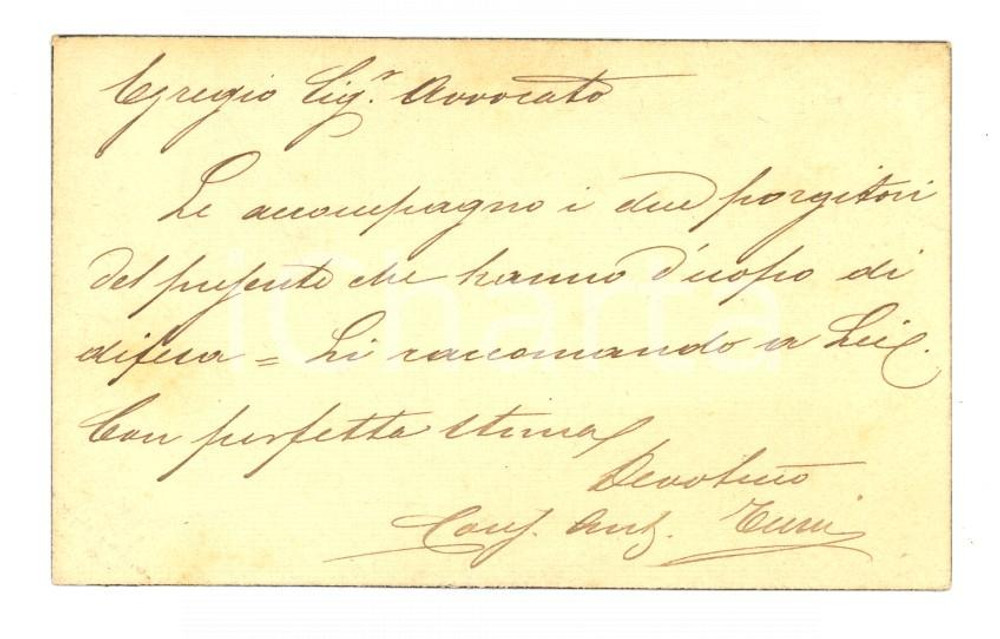 Egregio Sig.r Avvocato
Le accompagno i due porgitori
del presente che hanno d'uopo di
difesa = Li raccomando a Lei.
Con perfetta stima
Devotmo
Ant.
ICharta